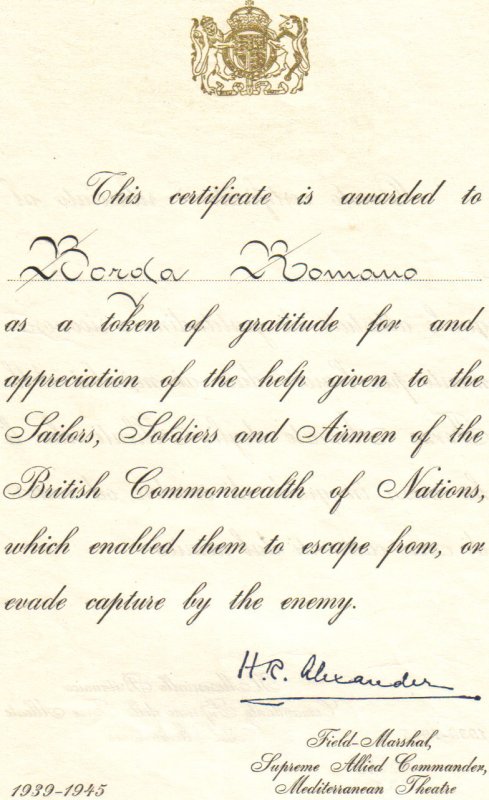 This certificate is awarded to
Borda Romano
as a token of gratitude for and
appreciation of the help given to the
Sailors, Soldiers and Airmen of the
British Commonwealth of Nations,
which enabled them to escape from, or
evade capture by the enemy.
H.R. Alexander
Field-Marshal,
Supreme Allied Commander,
1939-1945 Mediterranean Theatre